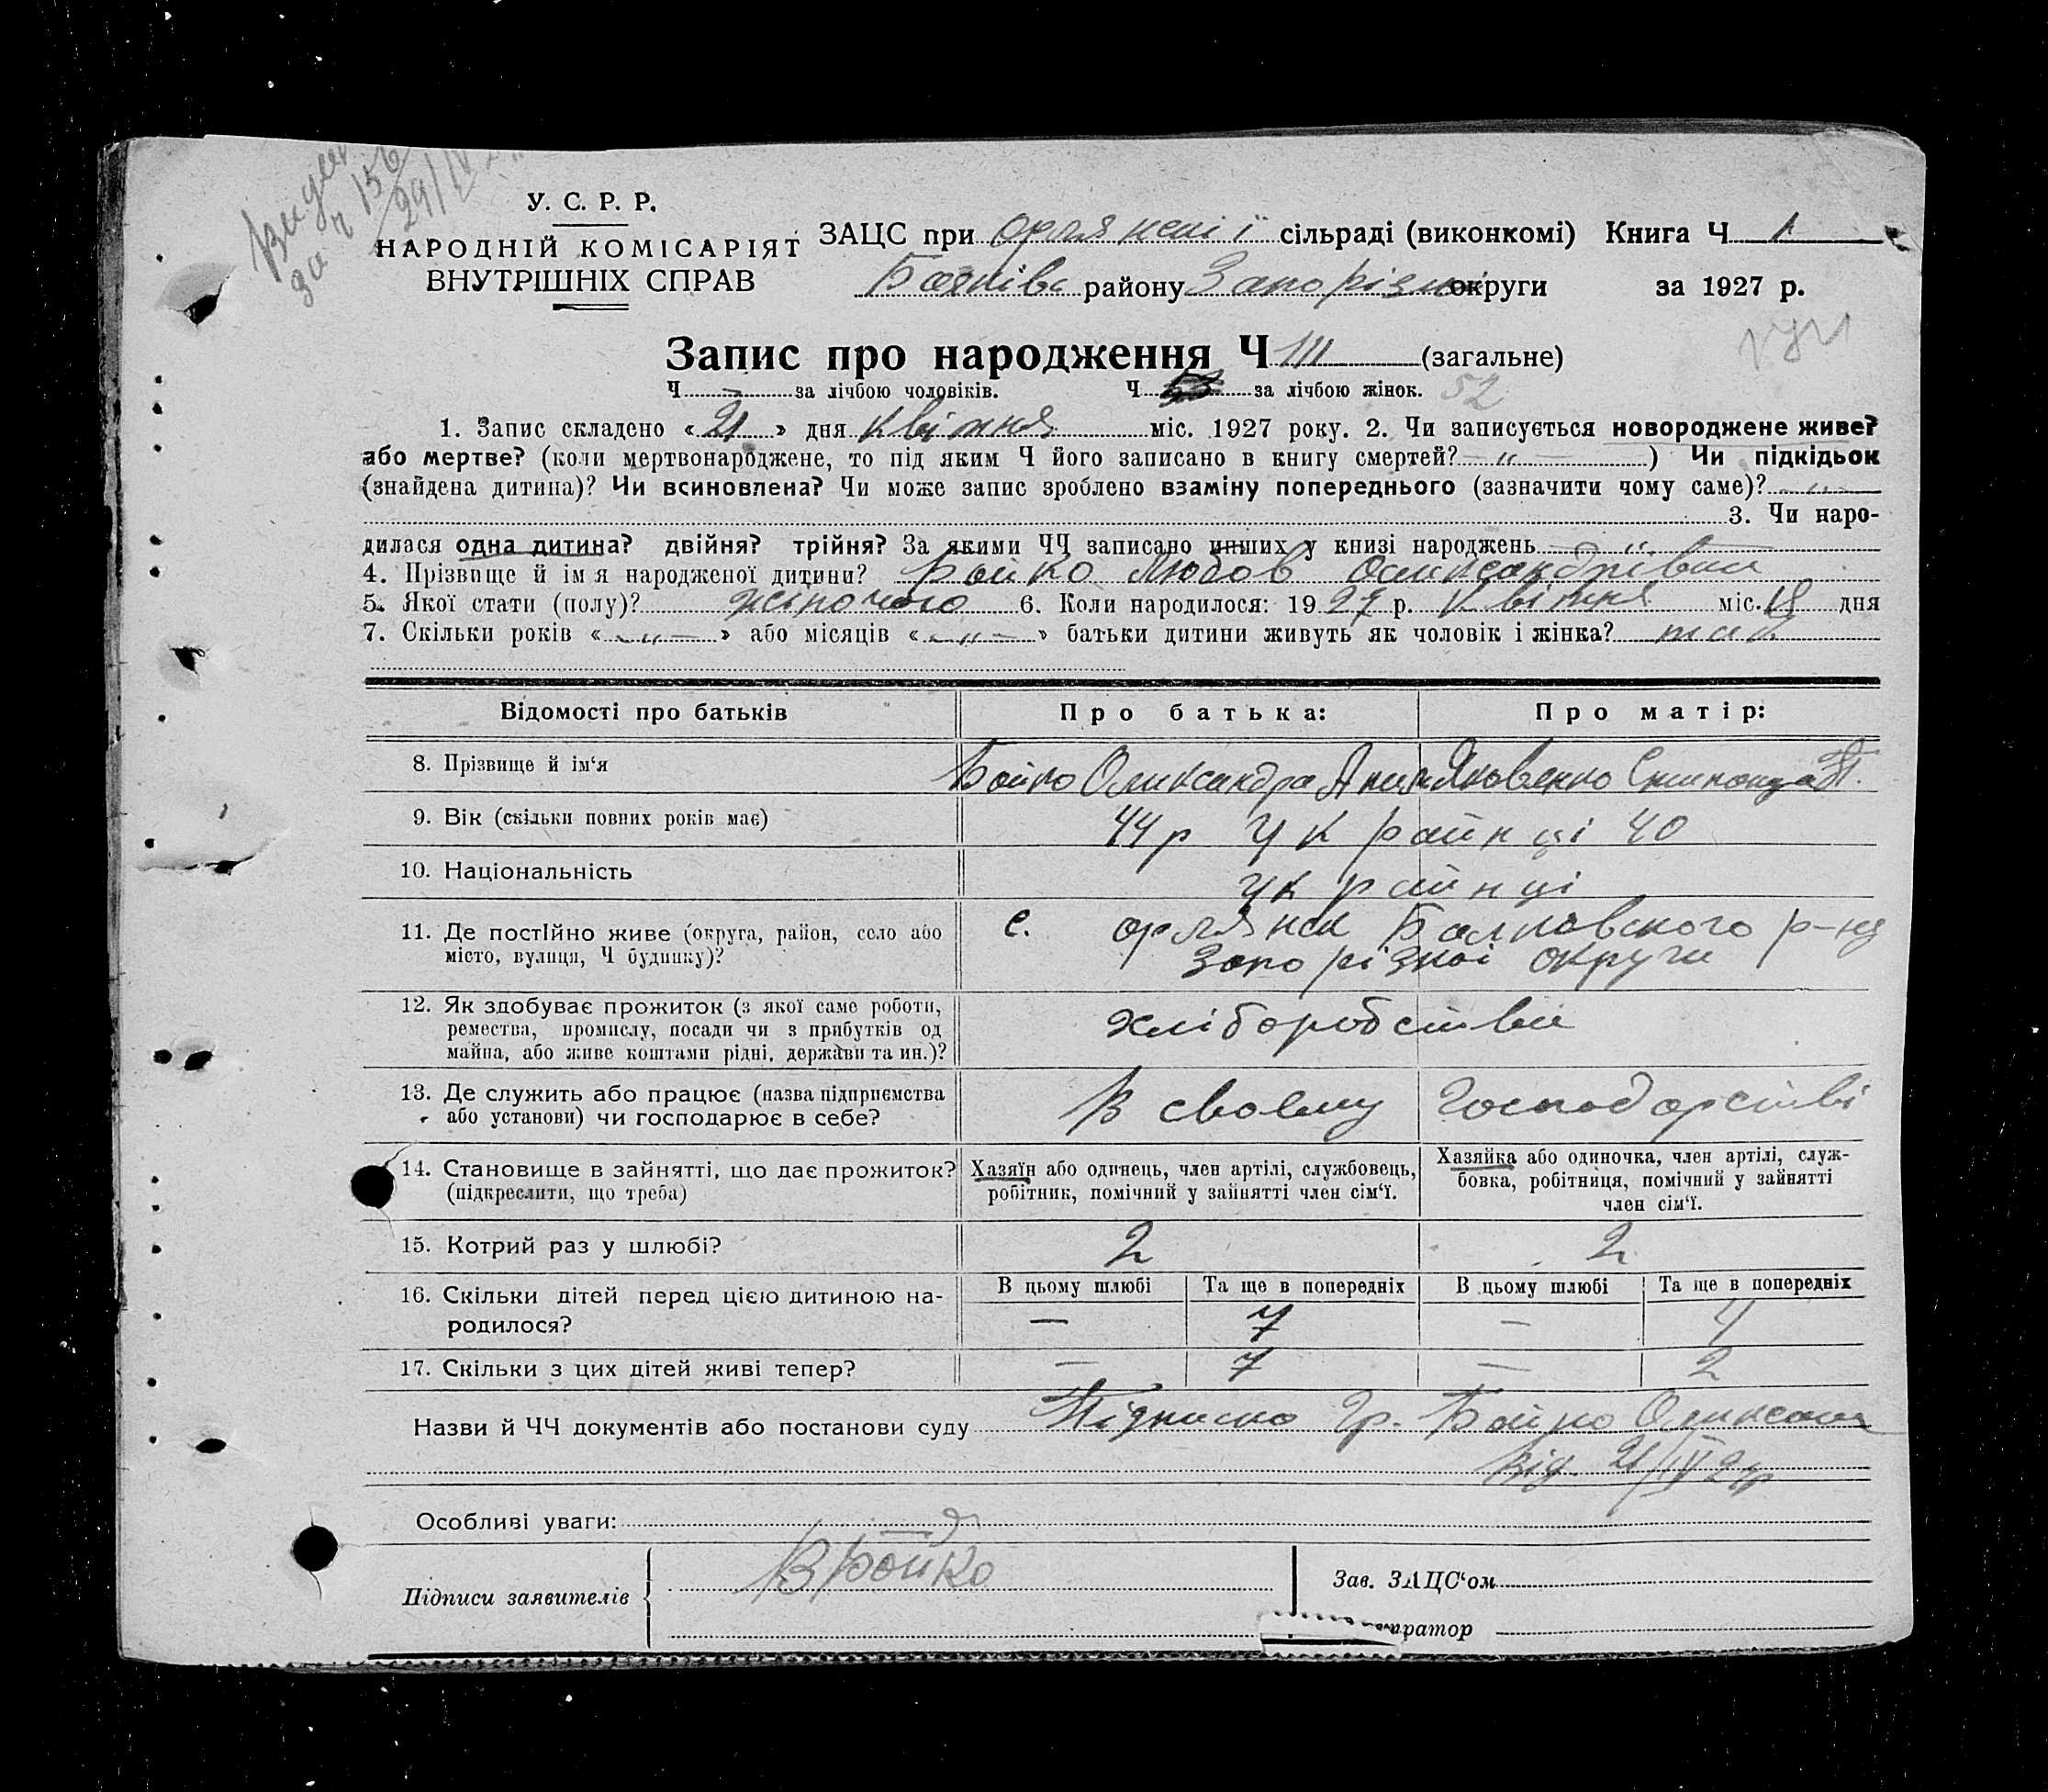 за ч 156
29/IV
У. С. Р. Р.
НАРОДНІЙ КОМІСАРІЯТ
ВНУТРІШНІХ СПРАВ
ЗАЦС при орлянській сільраді (виконкомі) Книга Ч 1
району Запорізьк округи за 1927 р.
Запис про народження Ч 111 (загальне)
Ч за лічбою чоловіків. Ч за лічбою жінок. 52
1. Запис складено « 21 » дня квітня міс. 1927 року. 2. Чи записується новороджене живе?
або мертве? (коли мертвонароджене, то під яким Ч його записано в книгу смертей? — „ — ) Чи підкідьок
(знайдена дитина)? Чи всиновлена? Чи може запис зроблено взаміну попереднього (зазначити чому саме)? — „ —
3. Чи наро-
дилася одна дитина? двійня? трійня? За якими ЧЧ записано инших у книзі народжень — „ —
4. Прізвище й ім я народженої дитини? Бойко Любов Олександрівна
5. Якої стати (полу)? жіночого 6. Коли народилося: 1927 р. квітня міс. 18 дня
7. Скільки років « — „ — » або місяців « — „ — » батьки дитини живуть як чоловік і жінка? так
Відомості про батьків Про батька: Про матір:
8. Прізвище й ім‘я Бойко Олександра Яковенко
9. Вік (скільки повних років має) 44 р Українці 40
10. Національність українці
11. Де постійно живе (округа, район, село або с. орлянск Балковского р-ну
місто, вулиця, Ч будинку)? Запорізкоі округи
12. Як здобуває прожиток (з якої саме роботи, хліборобства
ремества, промислу, посади чи з прибутків од
майна, або живе коштами рідні, держави та ин.)?
13. Де служить або працює (назва підприємства В своему Господарстві
або установи) чи господарює в себе?
14. Становище в зайнятті, що дає прожиток? Хазяїн або одинець, член артілі, службовець, Хазяйка або одиночка, член артілі, служ-
(підкреслити, що треба) робітник, помічний у зайнятті член сім‘ї. бовка, робітниця, помічний у зайнятті
член сім‘ї.
15. Котрий раз у шлюбі? 2 2
В цьому шлюбі Та ще в попередніх В цьому шлюбі Та ще в попередніх
16. Скільки дітей перед цією дитиною на- — 7 — 4
родилося?
17. Скільки з цих дітей живі тепер? — 7 — 2
Назви й ЧЧ документів або постанови суду Підписка Гр. Бойко
від 21/IV 27р
Особливі уваги:
Підписи заявителів Бойко Зав. ЗАЦС‘ом
аратор